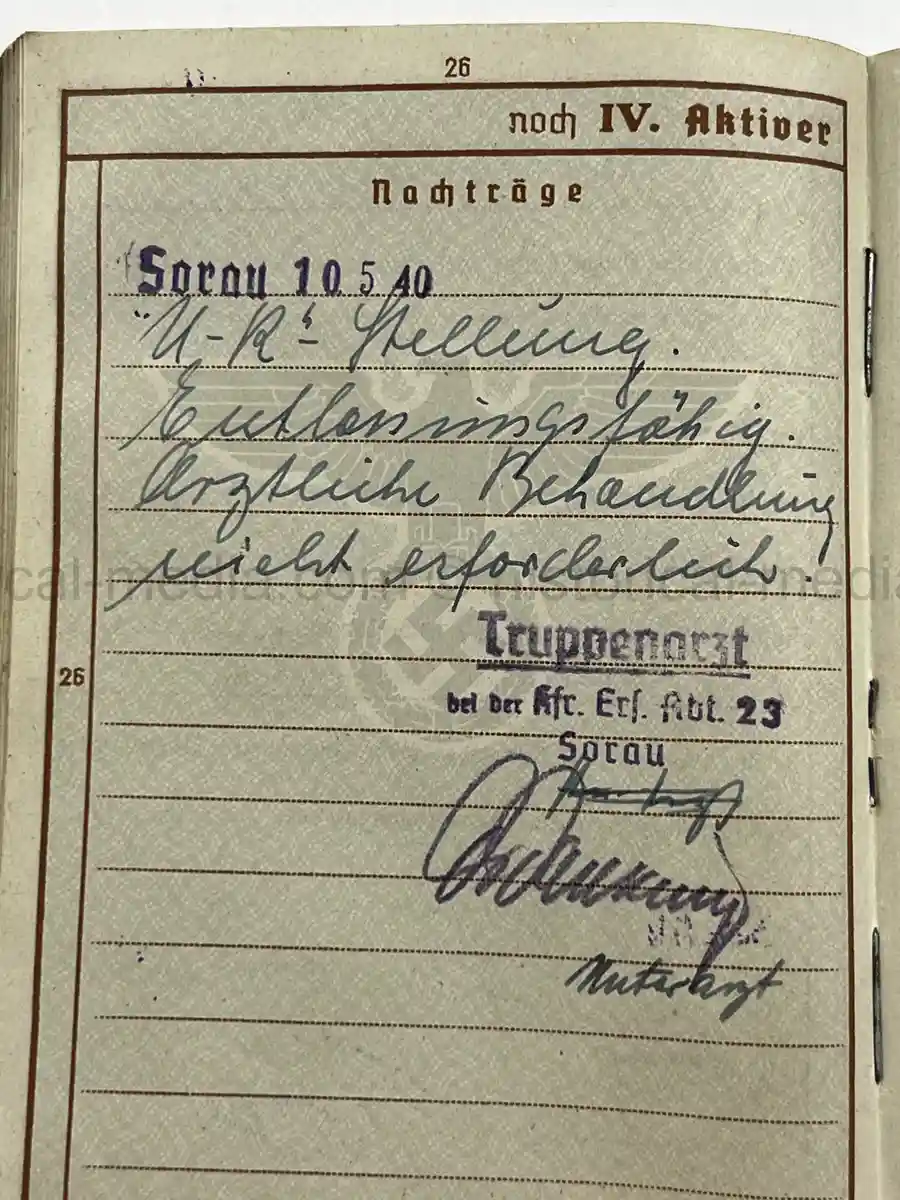 26
noch IV. Aktiver
Nachträge
Sorau 10 5 40
"U-K"- Stellung.
Entlassungsfähig.
Ärztliche Behandlung
nicht erforderlich.
Truppenarzt
26
bei der Kfr. Ers. Abt. 23
Sorau
Unterarzt